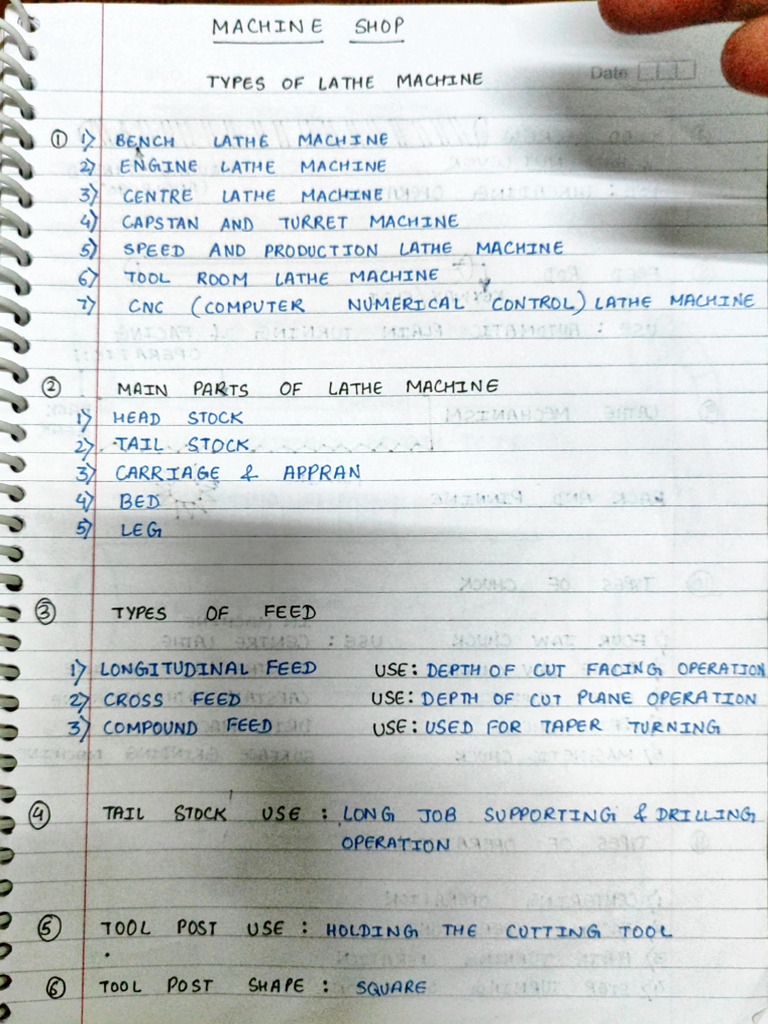 MACHINE SHOP
Date
TYPES OF LATHE MACHINE
① 1) BENCH LATHE MACHINE
2) ENGINE LATHE MACHINE
3) CENTRE LATHE MACHINE
4) CAPSTAN AND TURRET MACHINE
5) SPEED AND PRODUCTION LATHE MACHINE
6) TOOL ROOM LATHE MACHINE
7) CNC (COMPUTER NUMERICAL CONTROL) LATHE MACHINE
② MAIN PARTS OF LATHE MACHINE
1) HEAD STOCK
2) TAIL STOCK
3) CARRIAGE & APPRAN
4) BED
5) LEG
③ TYPES OF FEED
1) LONGITUDINAL FEED USE: DEPTH OF CUT FACING OPERATION
2) CROSS FEED USE: DEPTH OF CUT PLANE OPERATION
3) COMPOUND FEED USE: USED FOR TAPER TURNING
④ TAIL STOCK USE : LONG JOB SUPPORTING & DRILLING
OPERATION
⑤ TOOL POST USE : HOLDING THE CUTTING TOOL
⑥ TOOL POST SHAPE : SQUARE